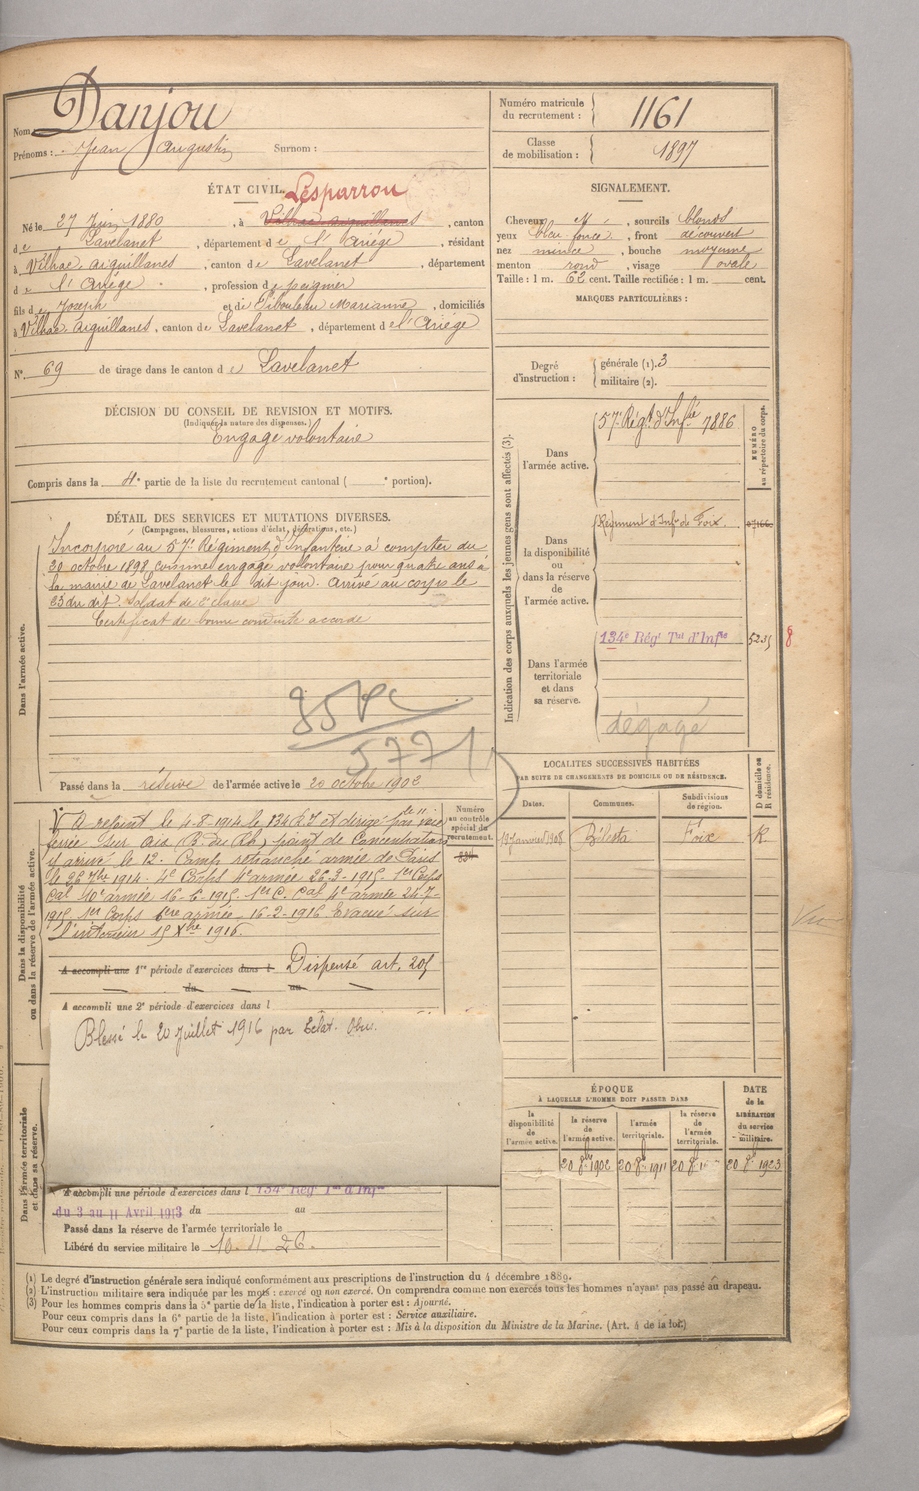 Nom Danjou
Prénoms : Jean Augustin Surnom :
Numéro matricule du recrutement : 1161
Classe de mobilisation : 1897
ÉTAT CIVIL. Lesparrou
Né le 27 Juin 1880, à Vilhac aiguillanes, canton
de Lavelanet, département de l'Ariège, résidant
à Vilhac aiguillanes, canton de Lavelanet, département
de l'Ariège, profession de peignier
fils de Joseph et de Tibouleau Marianne, domiciliés
à Vilhac aiguillanes, canton de Lavelanet, département de l'Ariège
N° 69 de tirage dans le canton de Lavelanet
SIGNALEMENT.
Cheveux, sourcils blonds
yeux bleu foncé, front découvert
nez mince, bouche moyenne
menton rond, visage ovale
Taille : 1 m. 62 cent. Taille rectifiée : 1 m. cent.
MARQUES PARTICULIÈRES :
Degré d'instruction :
générale (1). 3
militaire (2).
DÉCISION DU CONSEIL DE REVISION ET MOTIFS.
(Indiquer la nature des dispenses.)
Engagé volontaire
Compris dans la 4e partie de la liste du recrutement cantonal ( e portion).
DÉTAIL DES SERVICES ET MUTATIONS DIVERSES.
(Campagnes, blessures, actions d'éclat, décorations, etc.)
Dans l'armée active.
Incorporé au 57e Régiment d'Infanterie à compter du
20 octobre 1898 comme engagé volontaire pour quatre ans à
la mairie de Lavelanet le dit jour. Arrivé au corps le
23 du dit. Soldat de 2e classe
Certificat de bonne conduite accordé
Passé dans la réserve de l'armée active le 20 octobre 1902
Indication des corps auxquels les jeunes gens sont affectés (3).
NUMÉRO au répertoire du corps.
Dans l'armée active.
57e Régt d'Infie 7886
Dans la disponibilité ou dans la réserve de l'armée active.
Régiment d'Infie de Foix.
Dans l'armée territoriale et dans sa réserve.
134e Régt Tal d'Infie
dégagé
LOCALITÉS SUCCESSIVES HABITÉES
PAR SUITE DE CHANGEMENTS DE DOMICILE OU DE RÉSIDENCE.
Dates. Communes. Subdivisions de région. D domicile ou R résidence.
19 Janvier 1908 Bélesta Foix R.
Dans la disponibilité ou dans la réserve de l'armée active.
Numéro au contrôle spécial du recrutement.
A rejoint le 4-8-1914 le 134 R.I et dirigé par voie
ferrée sur point de Concentration
y arrivé le 12. Camp retranché armée de Paris
le 26 7bre 1914. 4e Corps 4e armée 26-3-1915. 1er Corps
Cal 10e armée 16-6-1915. 1er C. Cal 4e armée 24-7-
1915. 1er Corps 6ème armée 16-2-1916 Evacué sur
l'intérieur 15 Xbre 1916.
A accompli une 1re période d'exercices dans l Dispensé art. 205
du au
A accompli une 2e période d'exercices dans l
Blessé le 20 Juillet 1916 par Eclat. Obus.
Dans l'armée territoriale et dans sa réserve.
A accompli une période d'exercices dans l 134e Régt Tal d'Infie
du 3 au 11 Avril 1913 du au
Passé dans la réserve de l'armée territoriale le
Libéré du service militaire le 10-11-26.
ÉPOQUE
À LAQUELLE L'HOMME DOIT PASSER DANS
la disponibilité de l'armée active. la réserve de l'armée active. l'armée territoriale. la réserve de l'armée territoriale.
DATE de la LIBÉRATION du service militaire.
20 8bre 1902 20 8b 1911 20 8b 20 8b 1923
(1) Le degré d'instruction générale sera indiqué conformément aux prescriptions de l'instruction du 4 décembre 1889.
(2) L'instruction militaire sera indiquée par les mots : exercé ou non exercé. On comprendra comme non exercés tous les hommes n'ayant pas passé au drapeau.
(3) Pour les hommes compris dans la 5e partie de la liste, l'indication à porter est : Ajourné.
Pour ceux compris dans la 6e partie de la liste, l'indication à porter est : Service auxiliaire.
Pour ceux compris dans la 7e partie de la liste, l'indication à porter est : Mis à la disposition du Ministre de la Marine. (Art. 4 de la loi.)